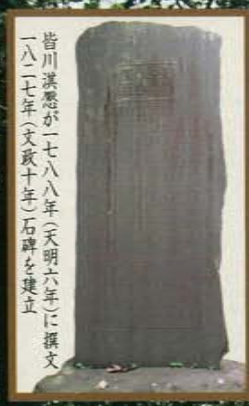 皆川淇愿が一七八八年(天明六年)に撰文
一八二七年(文政十年)石碑を建立